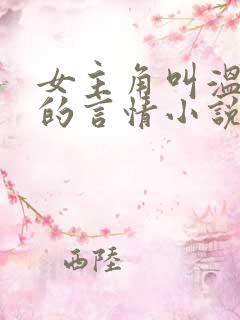 女主角叫溫
的言情小說
西陸